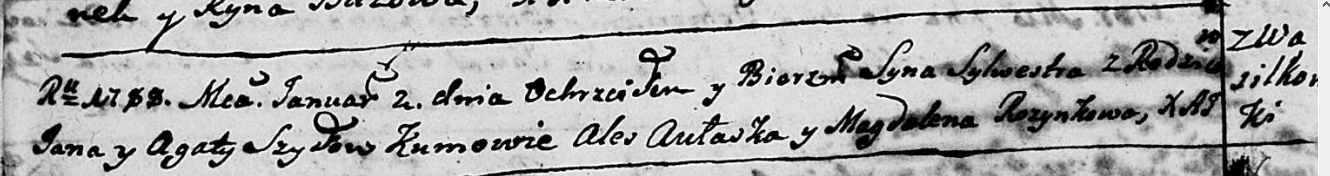 nek y Ryna
Rᵘ 1788. Mca. Januar 2. dnia Ochrzciłem y Bierzm Syna Sylwestra z Rodzicow
Jana y Agaty Szyłow Kumowie Ales Aułaska y Magdalena Rozynkowa, XAT
z Wa
silkow
ki